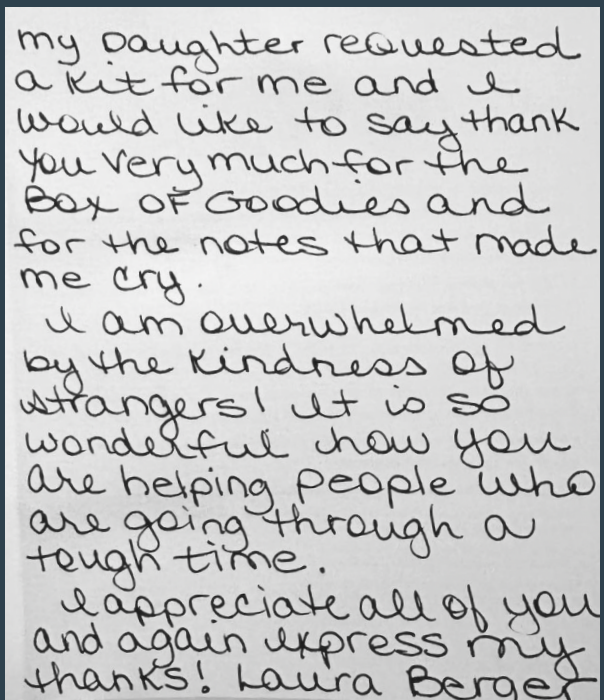 my Daughter requested
a kit for me and I
would like to say thank
you very much for the
Box OF Goodies and
for the notes that made
me cry.
I am overwhelmed
by the kindness of
strangers! It is so
wonderful how you
are helping people who
are going through a
tough time.
I appreciate all of you
and again express my
thanks! Laura Berger